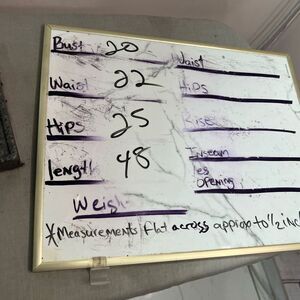 Bust 20
Waist 22
Hips 25
length 48
Weigh
Waist
Hips
Rise
Inseam
Leg
Opening
*Measurements flat across approx to 1/2 inc